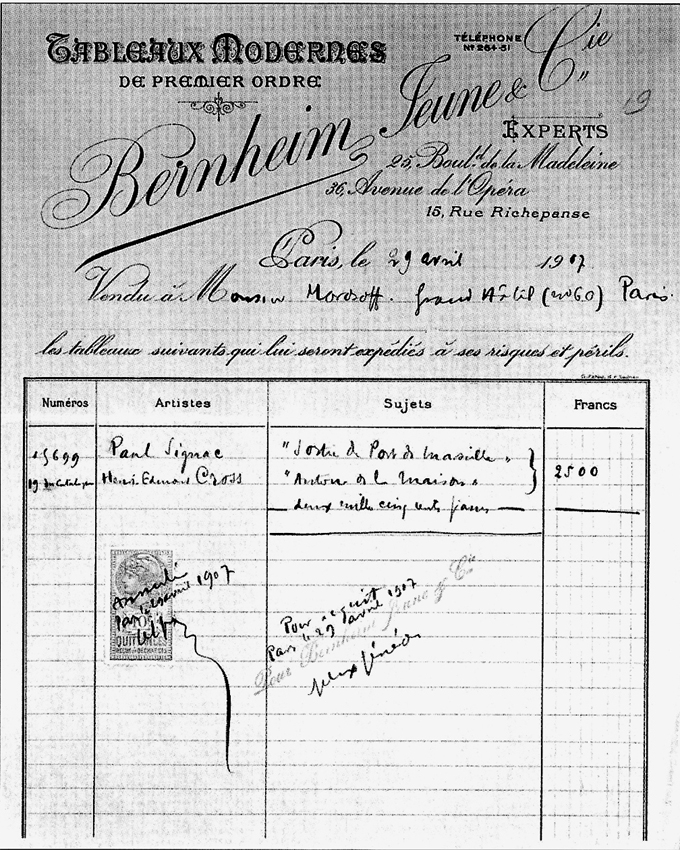 TABLEAUX MODERNES
DE PREMIER ORDRE
TÉLÉPHONE
Nº 264-51
Bernheim Jeune & Cie
EXPERTS
25, Boult.d de la Madeleine
36, Avenue de l'Opéra
15, Rue Richepanse
19
Paris, le 29 avril 1907
Vendu à Monsieur Morosoff. Grand Hôtel (2060) Paris.
les tableaux suivants qui lui seront expédiés à ses risques et périls.
Numéros Artistes Sujets Francs
15699 Paul Signac "Sortie du Port de Marseille" 2500
19 du Catalogue Henri Edmond Cross "Autour de la Maison"
deux mille cinq cents francs
Annulé
Paris 29 avril 1907
QUITTANCES
Pour acquit
Paris 29 avril 1907
Pour Bernheim Jeune & Cie
félix fénéon